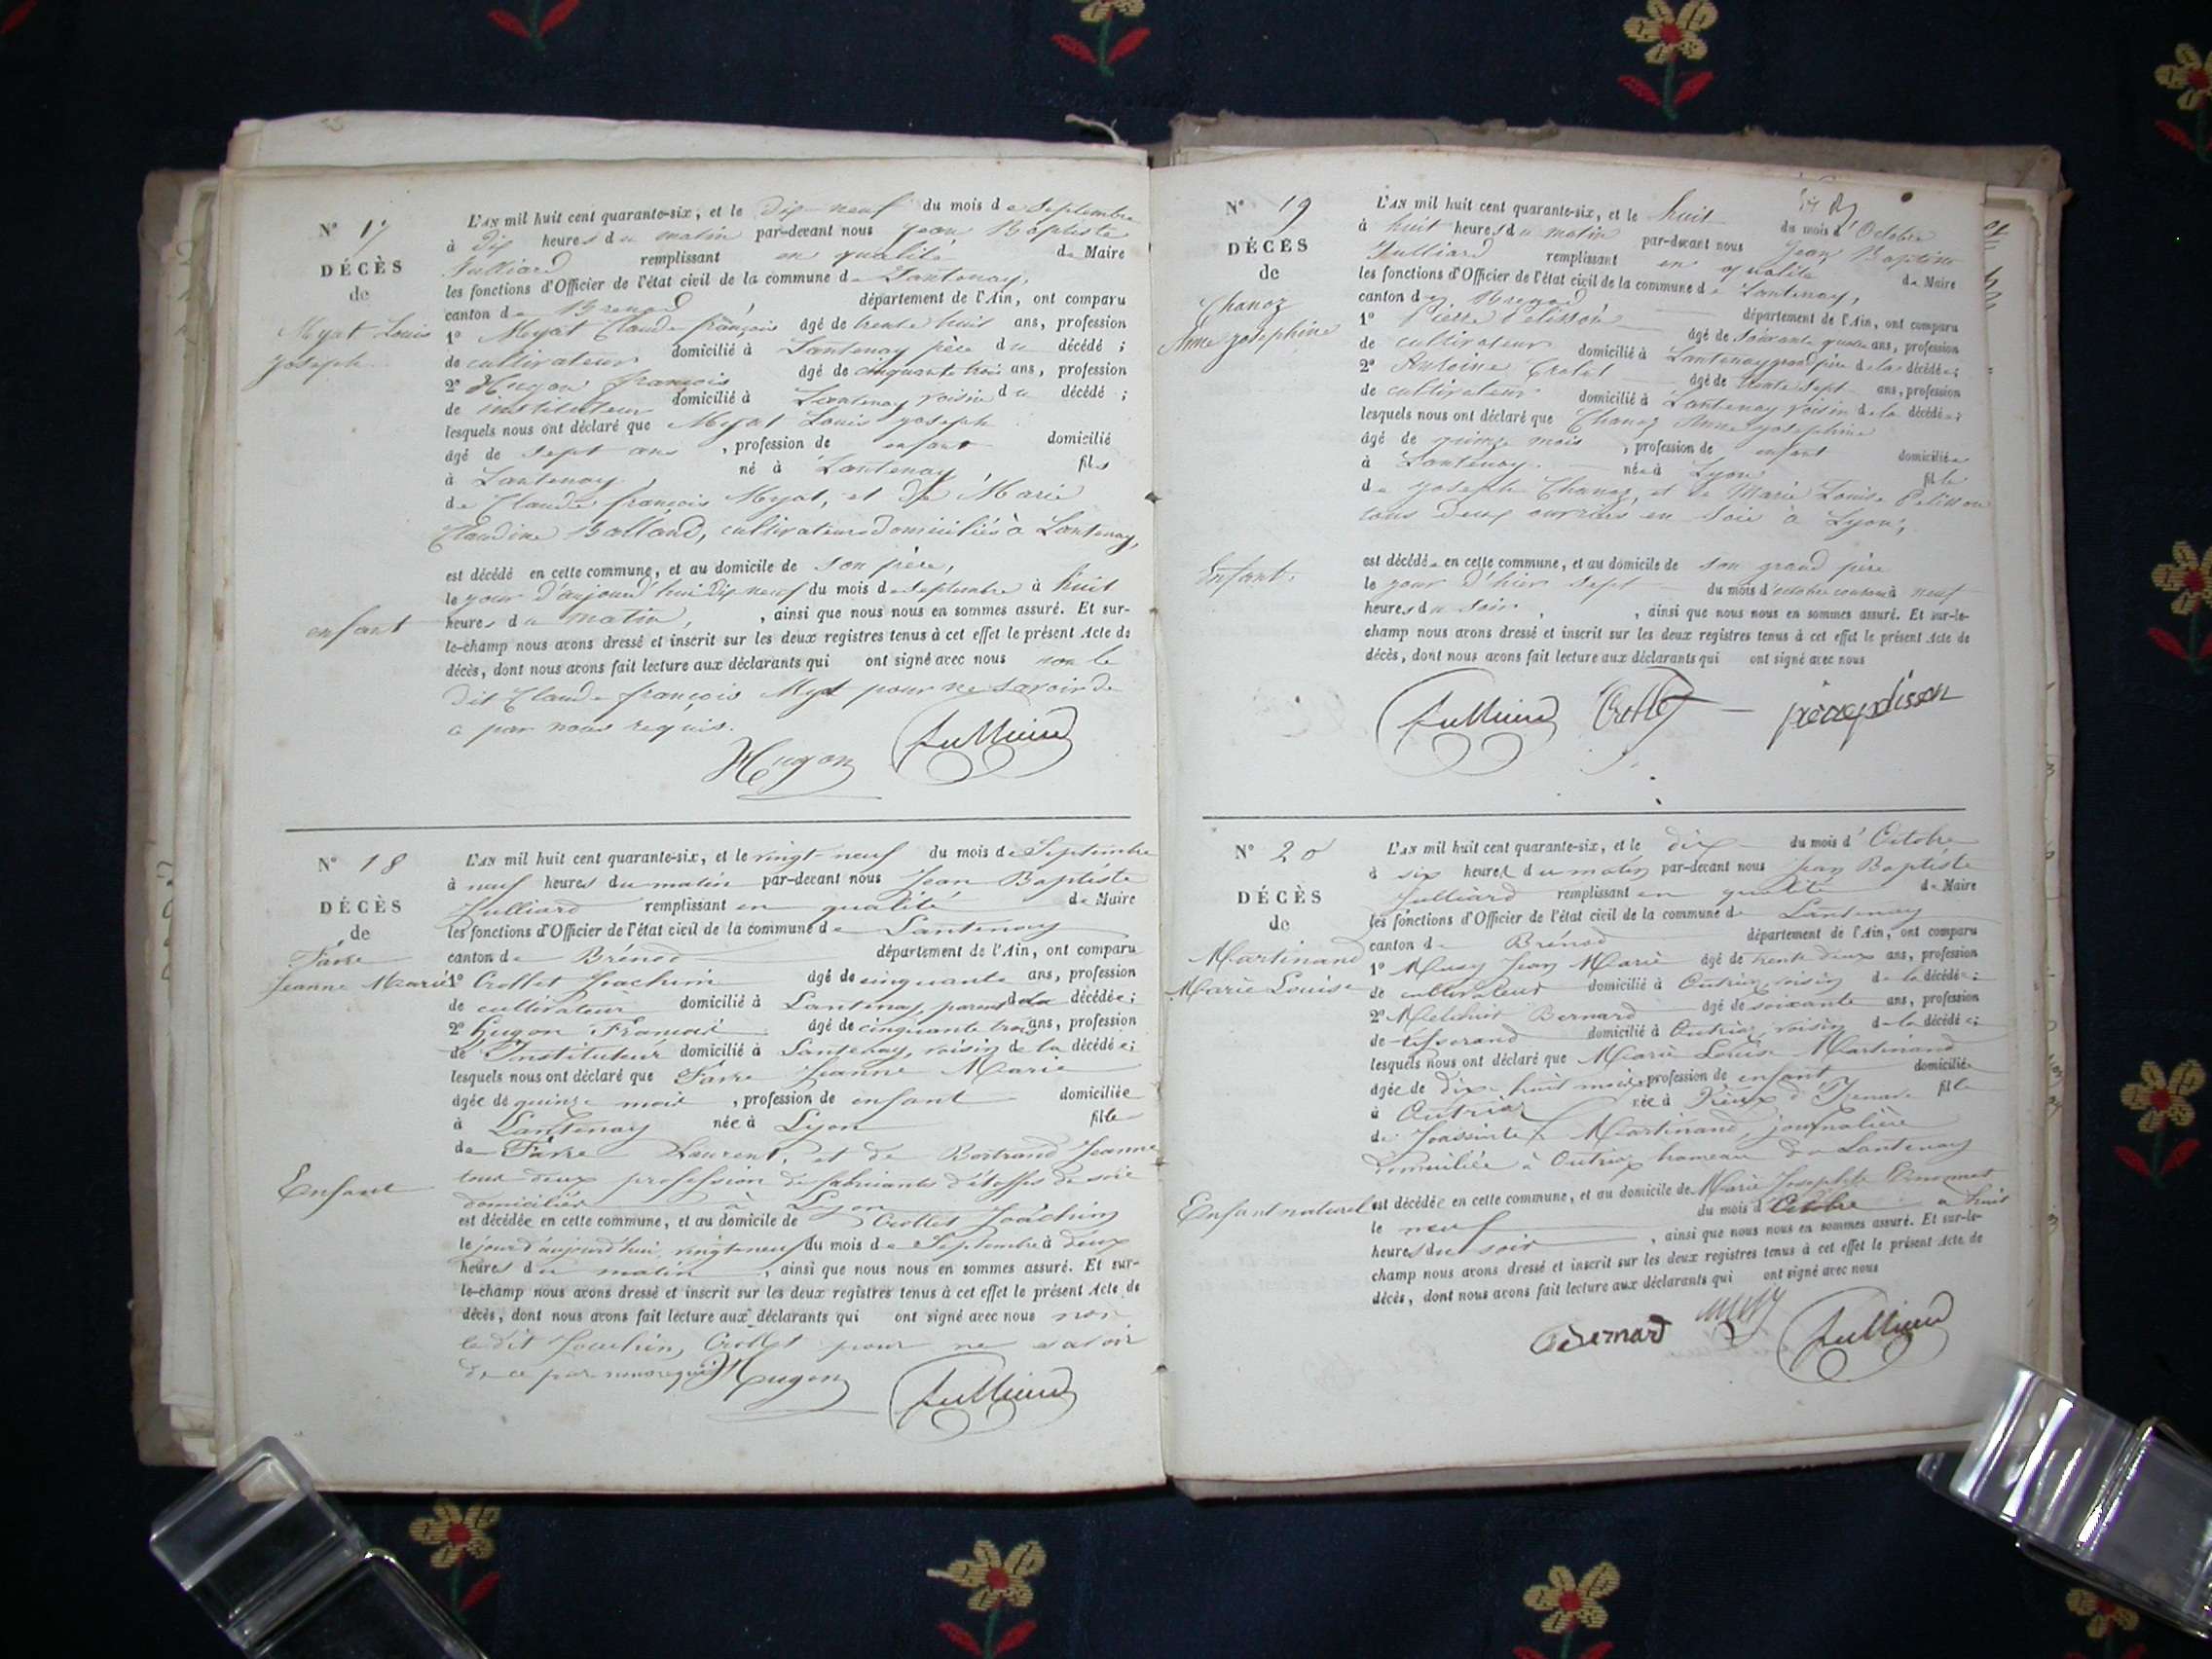 N° 17
DÉCÈS
de
Myat Louis
Joseph
enfant
L'AN mil huit cent quarante-six, et le dix-neuf du mois de Septembre
à dix heures du matin par-devant nous Jean Baptiste
Julliard remplissant en qualité de Maire
les fonctions d'Officier de l'état civil de la commune de Lantenay,
canton de Brenod, département de l'Ain, ont comparu
1° Myat Claude françois âgé de trente huit ans, profession
de cultivateur domicilié à Lantenay père du décédé ;
2° Hugon françois âgé de cinquante trois ans, profession
de instituteur domicilié à Lantenay voisin du décédé ;
lesquels nous ont déclaré que Myat Louis Joseph
âgé de sept ans, profession de enfant domicilié
à Lantenay, né à Lantenay, fils
de Claude françois Myat, et de Marie
Claudine Balland, cultivateurs domiciliés à Lantenay,
est décédé en cette commune, et au domicile de son père,
le jour d'aujourd'hui dix neuf du mois de septembre à huit
heures du matin, , ainsi que nous nous en sommes assuré. Et sur-
le-champ nous avons dressé et inscrit sur les deux registres tenus à cet effet le présent Acte de
décès, dont nous avons fait lecture aux déclarants qui ont signé avec nous non le
dit Claude françois Myat pour ne savoir de
ce par nous requis.
Hugon Julliard
N° 18
DÉCÈS
de
Favre
Jeanne Marie
Enfant
L'AN mil huit cent quarante-six, et le vingt-neuf du mois de Septembre
à neuf heures du matin par-devant nous Jean Baptiste
Julliard remplissant en qualité de Maire
les fonctions d'Officier de l'état civil de la commune de Lantenay
canton de Brénod département de l'Ain, ont comparu
1° Crollet Joachim âgé de cinquante ans, profession
de cultivateur domicilié à Lantenay, parent de la décédée ;
2° Hugon François âgé de cinquante trois ans, profession
de Instituteur domicilié à Lantenay, voisin de la décédée ;
lesquels nous ont déclaré que Favre Jeanne Marie
âgée de quinze mois, profession de enfant domiciliée
à Lantenay née à Lyon fille
de Favre Laurent, et de Bertrand Jeanne
tous deux profession de fabricants d'étoffes de soie
domiciliés à Lyon
est décédée en cette commune, et au domicile de Crollet Joachim
le jour d'aujourd'hui vingt-neuf du mois de Septembre à deux
heures du matin, ainsi que nous nous en sommes assuré. Et sur-
le-champ nous avons dressé et inscrit sur les deux registres tenus à cet effet le présent Acte de
décès, dont nous avons fait lecture aux déclarants qui ont signé avec nous non
le dit Joachim Crollet pour ne savoir
de ce par nous requis Hugon Julliard
N° 19
DÉCÈS
de
Chanoz
Anne Josephine
Enfant.
L'AN mil huit cent quarante-six, et le huit du mois d'Octobre
à huit heures du matin par-devant nous Jean Baptiste
Julliard remplissant en qualité de Maire
les fonctions d'Officier de l'état civil de la commune de Lantenay,
canton de Brenod, département de l'Ain, ont comparu
1° Pierre Pelisson âgé de soixante quatre ans, profession
de cultivateur domicilié à Lantenay grand père de la décédée ;
2° Antoine Crolet âgé de trente sept ans, profession
de cultivateur domicilié à Lantenay voisin de la décédée ;
lesquels nous ont déclaré que Chanoz Anne Josephine
âgé de quinze mois, profession de enfant domiciliée
à Lantenay. née à Lyon fille
de Joseph Chanoz, et de Marie Louise Pelisson
tous deux ouvriés en soie à Lyon,
est décédée en cette commune, et au domicile de son grand père
le jour d'hier sept du mois d'octobre courant à neuf
heures du soir, , ainsi que nous nous en sommes assuré. Et sur-le-
champ nous avons dressé et inscrit sur les deux registres tenus à cet effet le présent Acte de
décès, dont nous avons fait lecture aux déclarants qui ont signé avec nous
Julliard Crollet pierre pelisson
N° 20
DÉCÈS
de
Martinand
Marie Louise
Enfant naturel
L'AN mil huit cent quarante-six, et le dix du mois d'Octobre
à six heures du matin par-devant nous Jean Baptiste
Julliard remplissant en qualité de Maire
les fonctions d'Officier de l'état civil de la commune de Lantenay
canton de Brénod département de l'Ain, ont comparu
1° Musy Jean Marie âgé de trente deux ans, profession
de cultivateur domicilié à Outriaz, voisin de la décédée ;
2° Melchior Bernard âgé de soixante ans, profession
de tisserand domicilié à Outriaz, voisin de la décédée ;
lesquels nous ont déclaré que Marie Louise Martinand
âgée de dix huit mois, profession de enfant domiciliée
à Outriaz née à Vieux d'Izenave fille
de Martinand, journalière
domiciliée à Outriaz hameau de Lantenay
est décédée en cette commune, et au domicile de Marie Josephte
le neuf du mois d'Octobre à huit
heures du soir, ainsi que nous nous en sommes assuré. Et sur-le-
champ nous avons dressé et inscrit sur les deux registres tenus à cet effet le présent Acte de
décès, dont nous avons fait lecture aux déclarants qui ont signé avec nous
Bernard musy Julliard